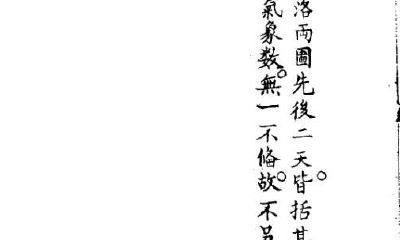 洛兩圖先後二天皆。括其
氣象数。無一不俻。故不另